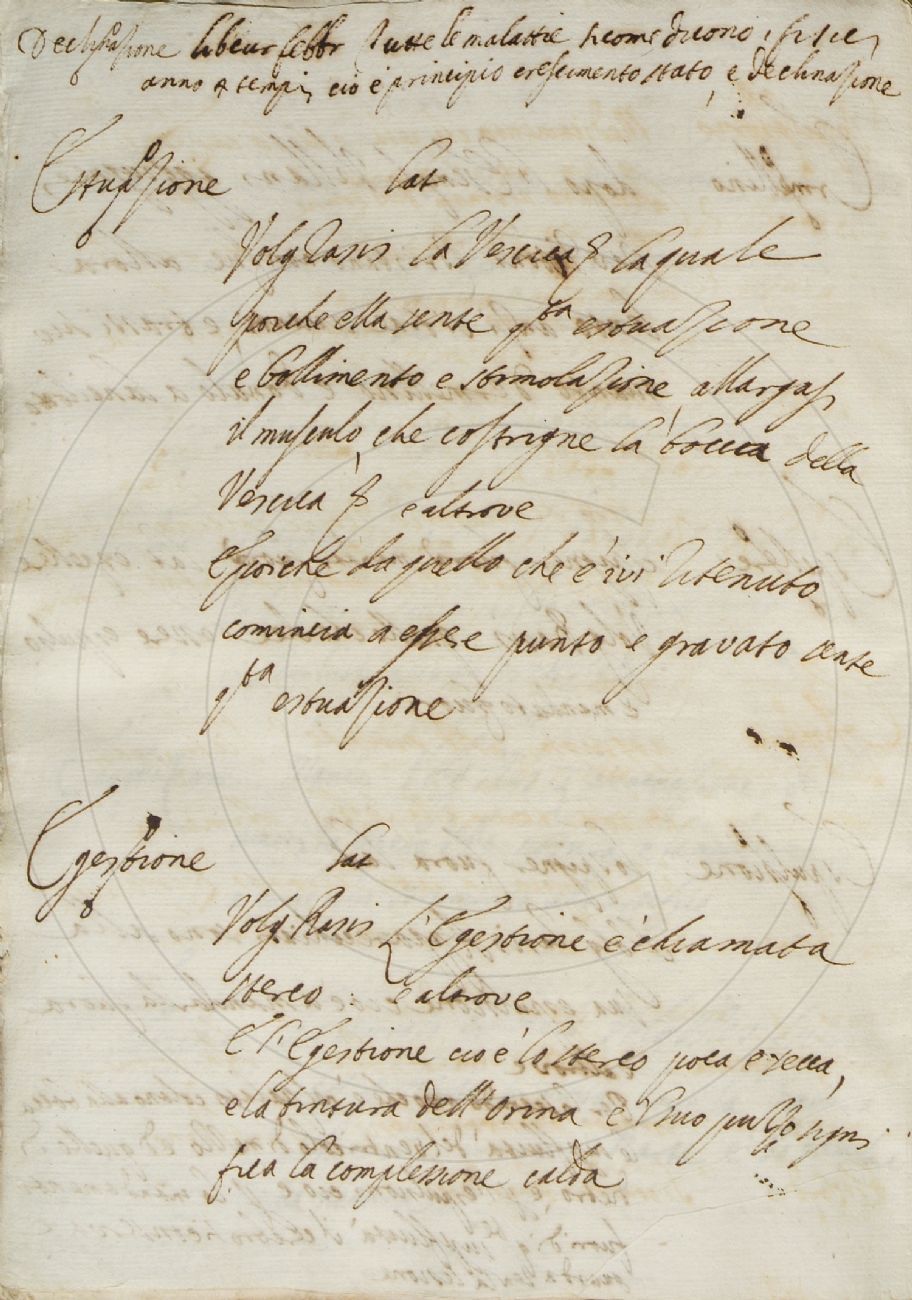 Declinazione libcur febbr Tutte le malattie sicome dicono i fisici
anno 4 tempi, cio è principio crescimento stato, e declinazione
Estuazione Lat
Volg Rasis La Vescica laquale
poiche ella sente qta estuazione
e bollimento e stimolazione, allargasi
il musculo, che costrigne la bocca della
Vescica e altrove
E poiche da quello che è ivi ritenuto
comincia a essere punto e gravato sente
qta estuazione
Egestione Lat
Volg. Rasis L'Egestione è chiamata
stereo : e altrove
E l'Egestione cio è lo stereo poca e secca,
e la tintura dell'Orina e 'l suo puzzo signi
fica la complessione calda